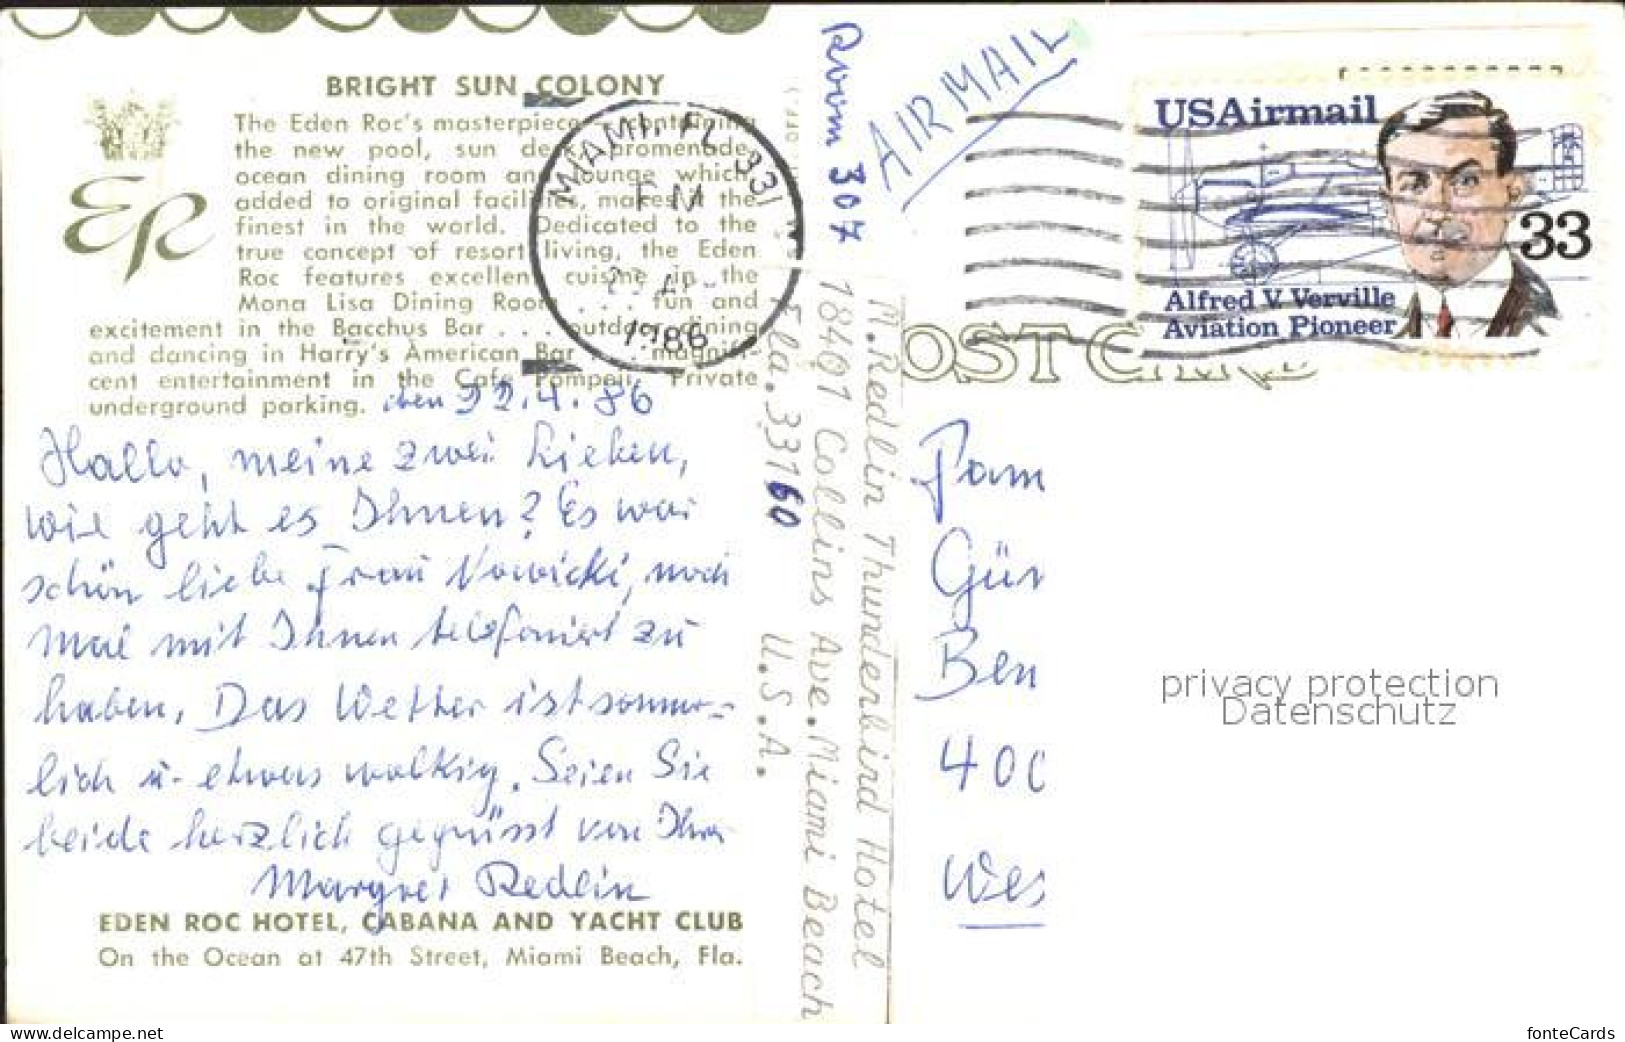 BRIGHT SUN COLONY
The Eden Roc's masterpiece containing
the new pool, sun deck, promenade,
ocean dining room and lounge which,
added to original facilities, makes it the
finest in the world. Dedicated to the
true concept of resort living, the Eden
Roc features excellent cuisine in the
Mona Lisa Dining Room . . . fun and
excitement in the Bacchus Bar . . . outdoor dining
and dancing in Harry's American Bar . . . magnifi-
cent entertainment in the Cafe Pompeii. Private
underground parking.
ER
den 22.4.86
Hallo, meine zwei Lieben,
wie geht es Ihnen? Es war
schön liebe Frau Nowicki, noch
mal mit Ihnen telefoniert zu
haben. Das Wetter ist sommer-
lich u. etwas wolkig. Seien Sie
beide herzlich gegrüsst von Ihrer
Margret Redlin
EDEN ROC HOTEL, CABANA AND YACHT CLUB
On the Ocean at 47th Street, Miami Beach, Fla.
MIAMI, FL 331
PM
1986
Room 307
AIRMAIL
M. Redlin Thunderbird Hotel
18401 Collins Ave. Miami Beach
Fla. 33160 U.S.A.
USAirmail
33
Alfred V. Verville
Aviation Pioneer
POST CARD
Fam
Gün
Ben
400
Wes
privacy protection
Datenschutz
www.delcampe.net
fonteCards